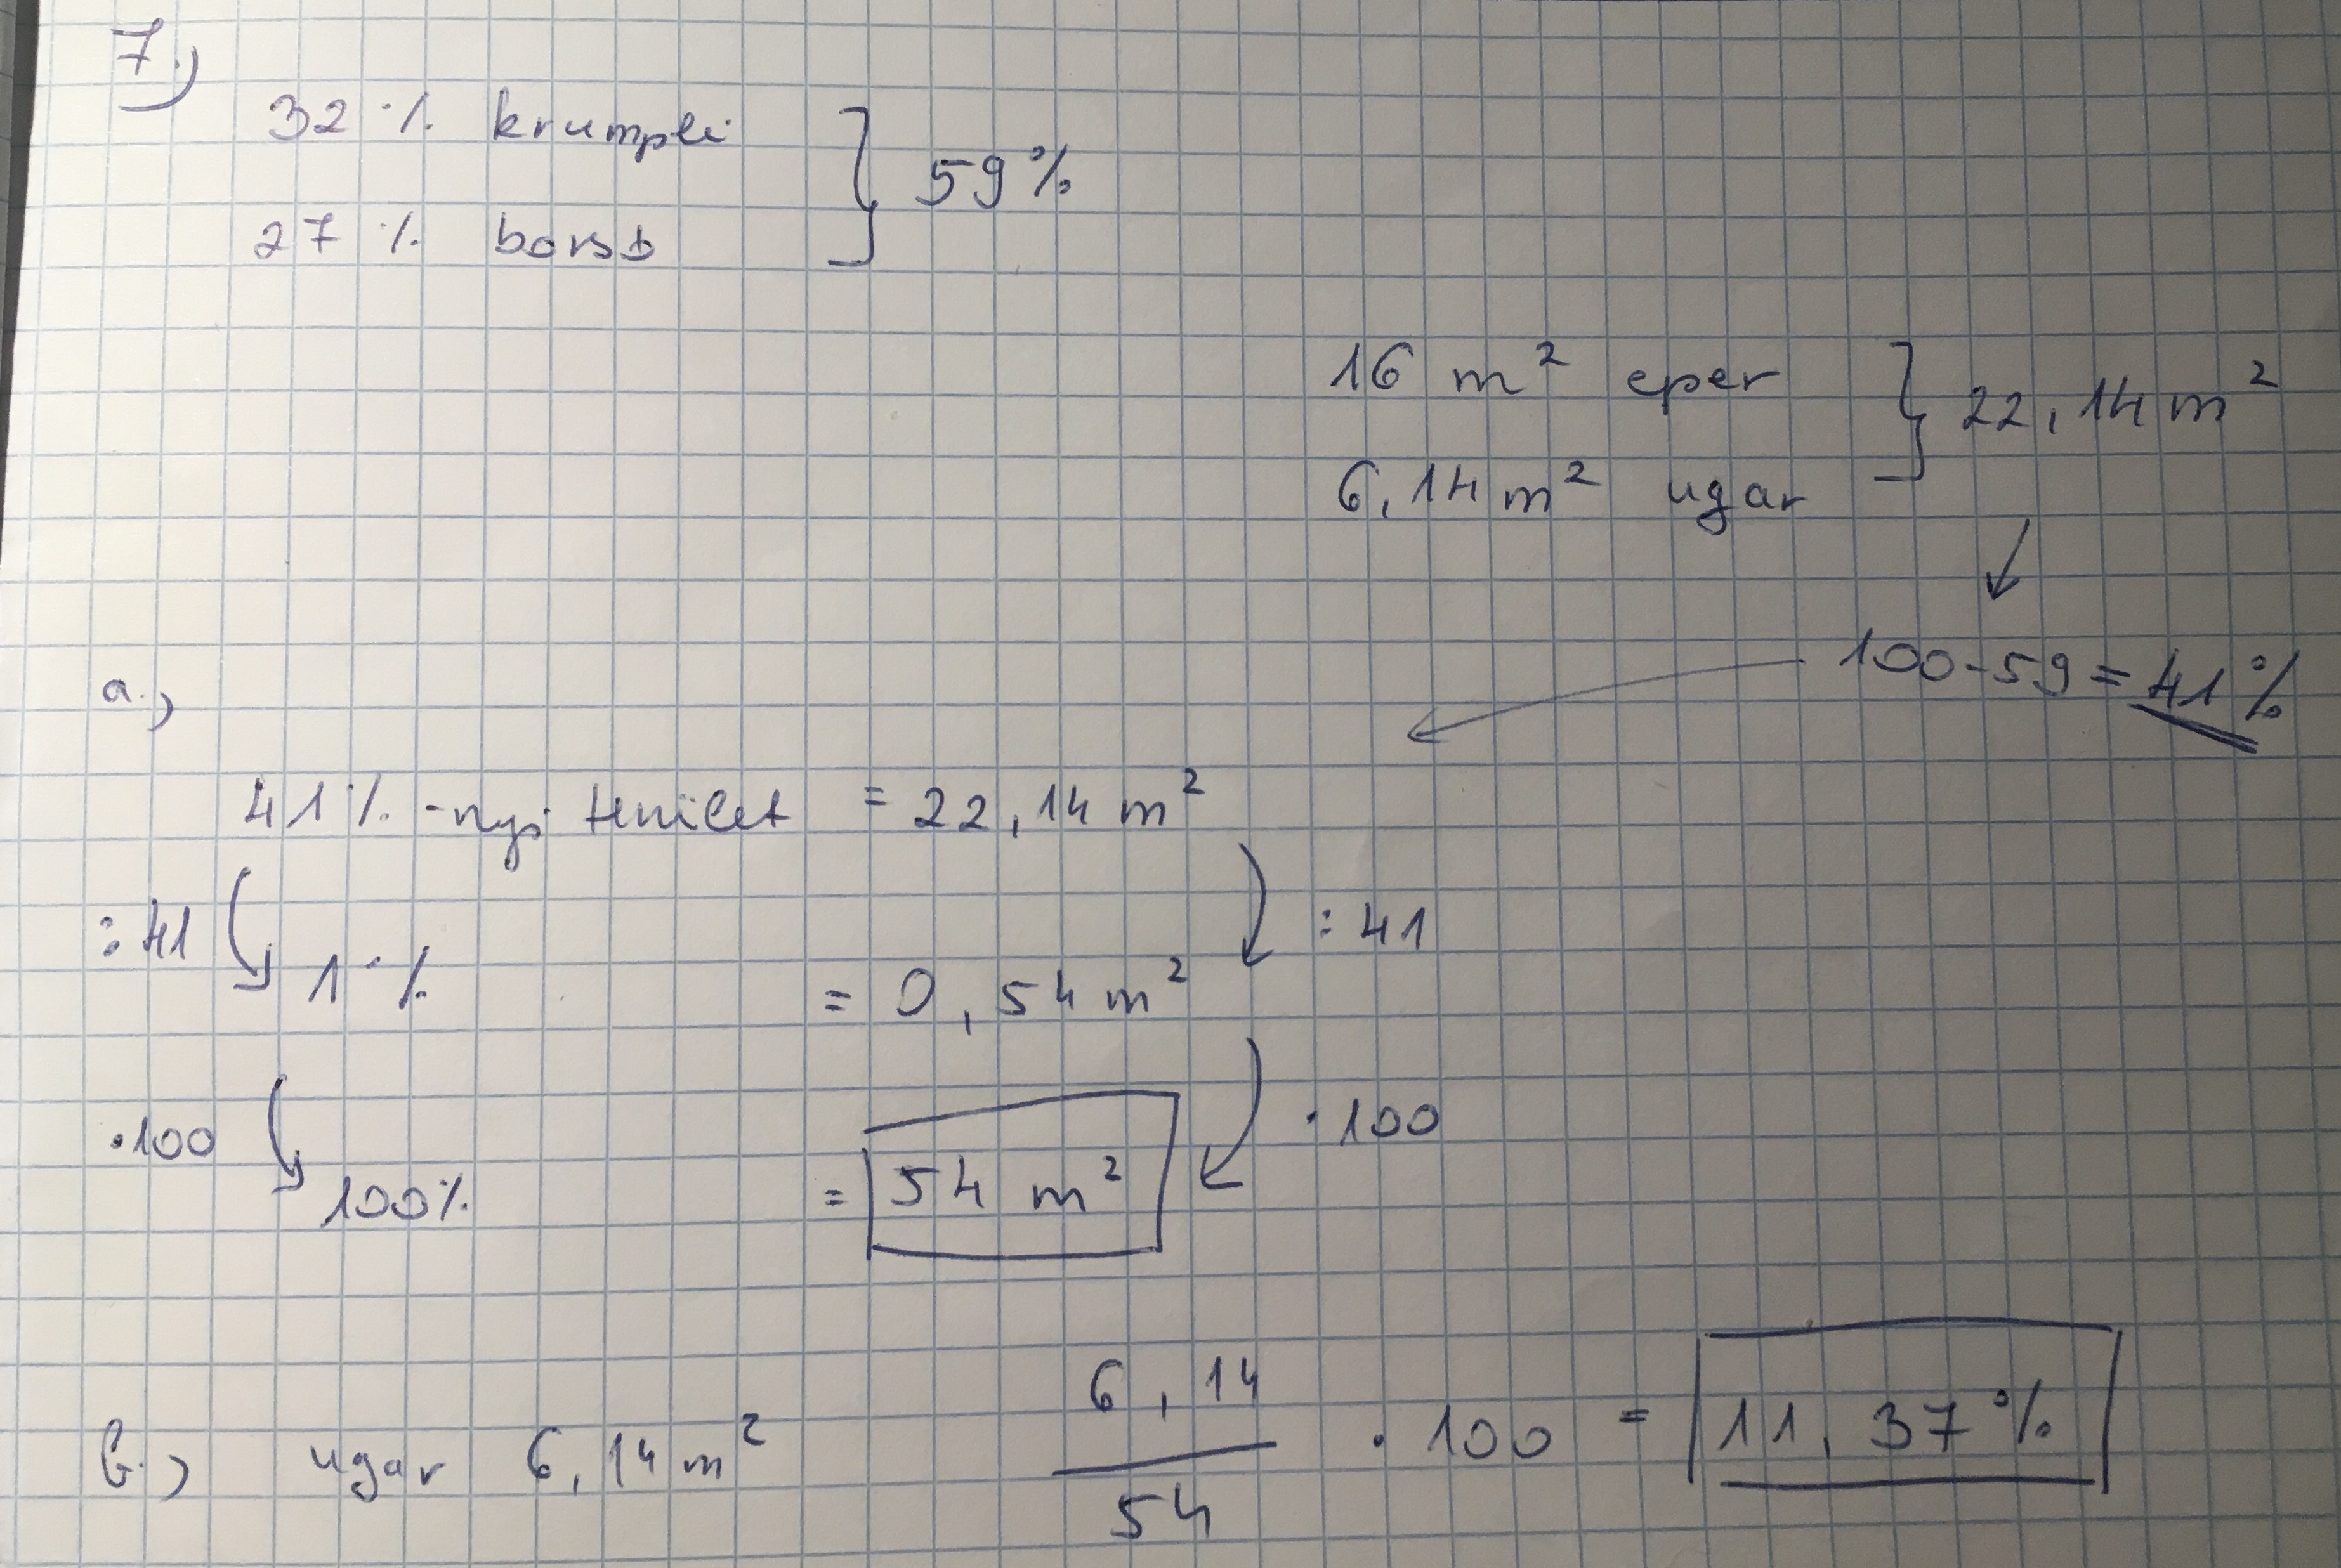 7.)
32 % krumpli
59 %
27 % borsó
16 m² eper
22,14 m²
6,14 m² ugar
100-59 = 41 %
a.)
41 % -nyi terület = 22,14 m²
:41 :41
1 % = 0,54 m²
·100 ·100
100% = 54 m²
b.) ugar 6,14 m² 6,14/54 · 100 = 11,37 %